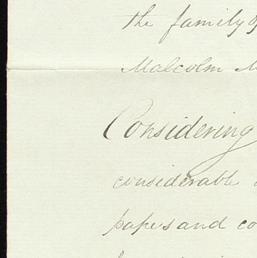 the family of
Malcolm M
Considering
considerable
papers and co